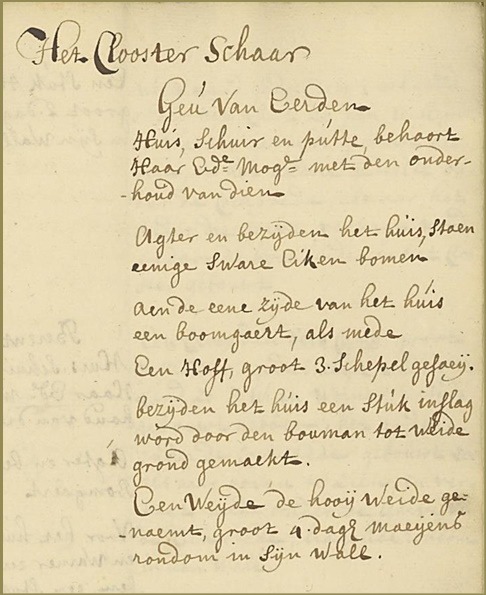 Het Clooster Schaar
Geú Van Eerden
Húis, Schuir en pútte, behoort
Haar Ede Moge met den onder-
-houd van dien
Agter en bezijden het húis, staen
eenige sware Eiken bomen
aen de eene zijde van het húis
een boomgaert, als mede
Een Hoff, groot 3. Schepel gesaeij.
bezijden het húis een stúk inslag
word door den bouman tot weide
grond gemaekt.
Een Weijde de hooij weide ge-
naemt, groot 4 dage maeijens
rondom in sijn wall.